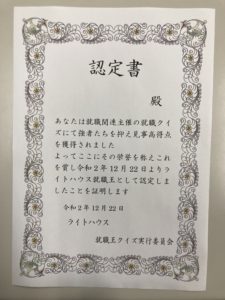 認定書
殿
あなたは就職関連主催の就職クイ
ズにて強者たちを抑え見事高得点
を獲得されました
よってここにその学誉を称えこれ
を賞し令和２年１２月２２日よりラ
イトハウス就職王として認定しま
したことを証明します
令和２年１２月２２日
ライトハウス
就職王クイズ実行委員会